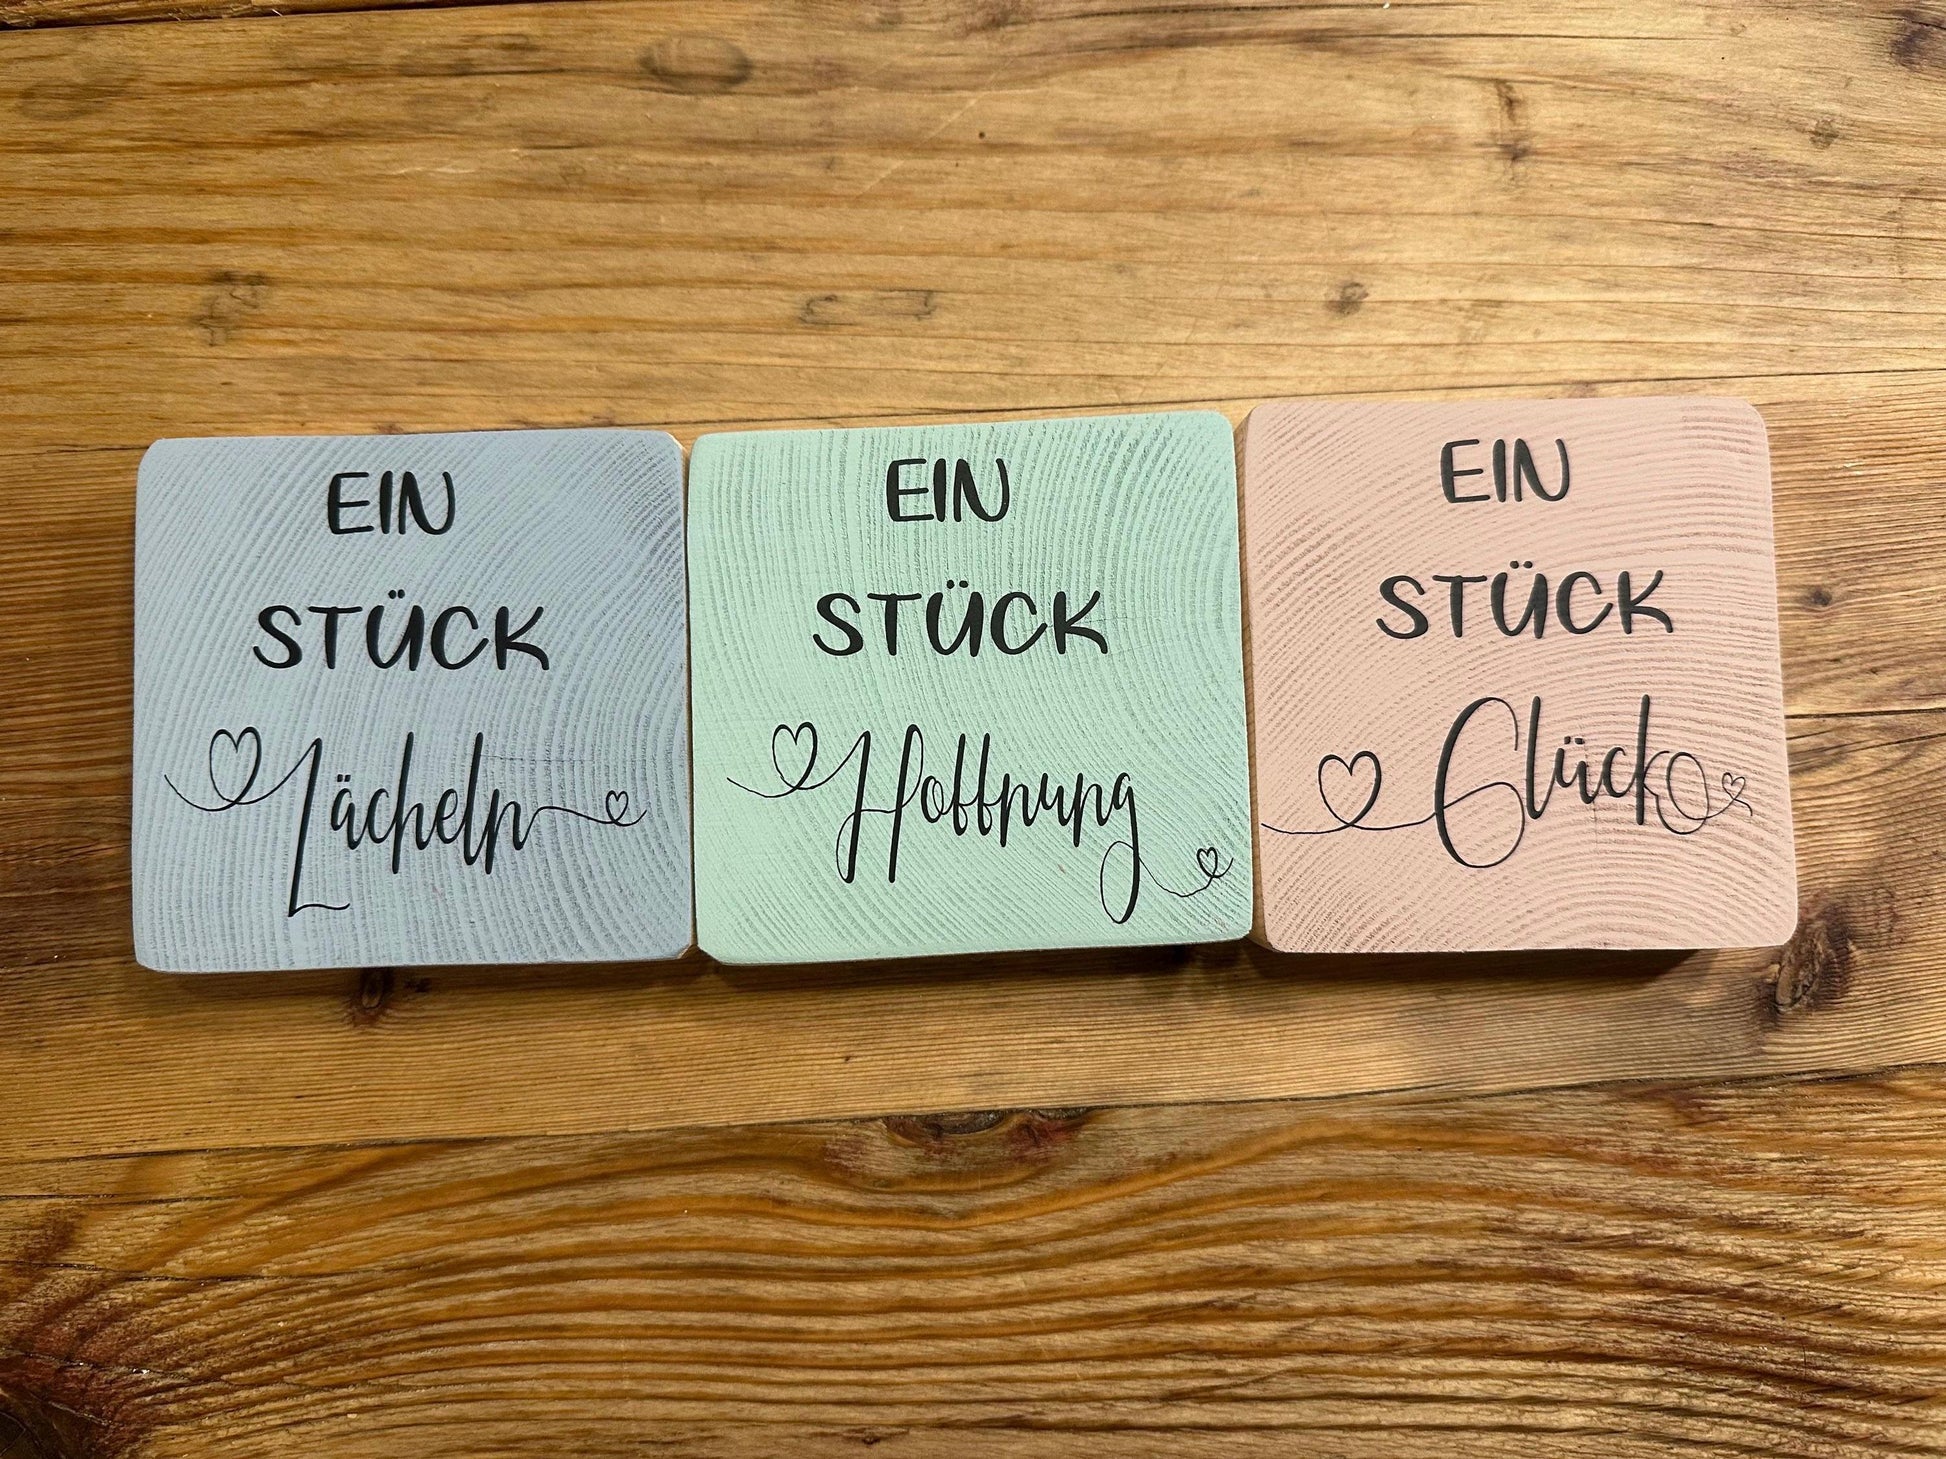 EIN
STÜCK
Lächeln
EIN
STÜCK
Hoffnung
EIN
STÜCK
Glück